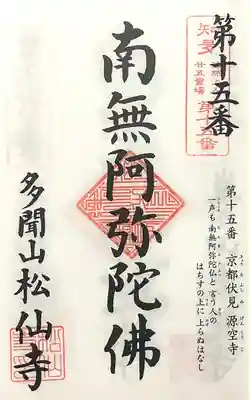 第十五番
南無阿弥陀佛
多聞山松仙寺
第十五番 京都伏見 源空寺
一声も南無阿弥陀仏と言う人の
はちすの上に上らぬはなし